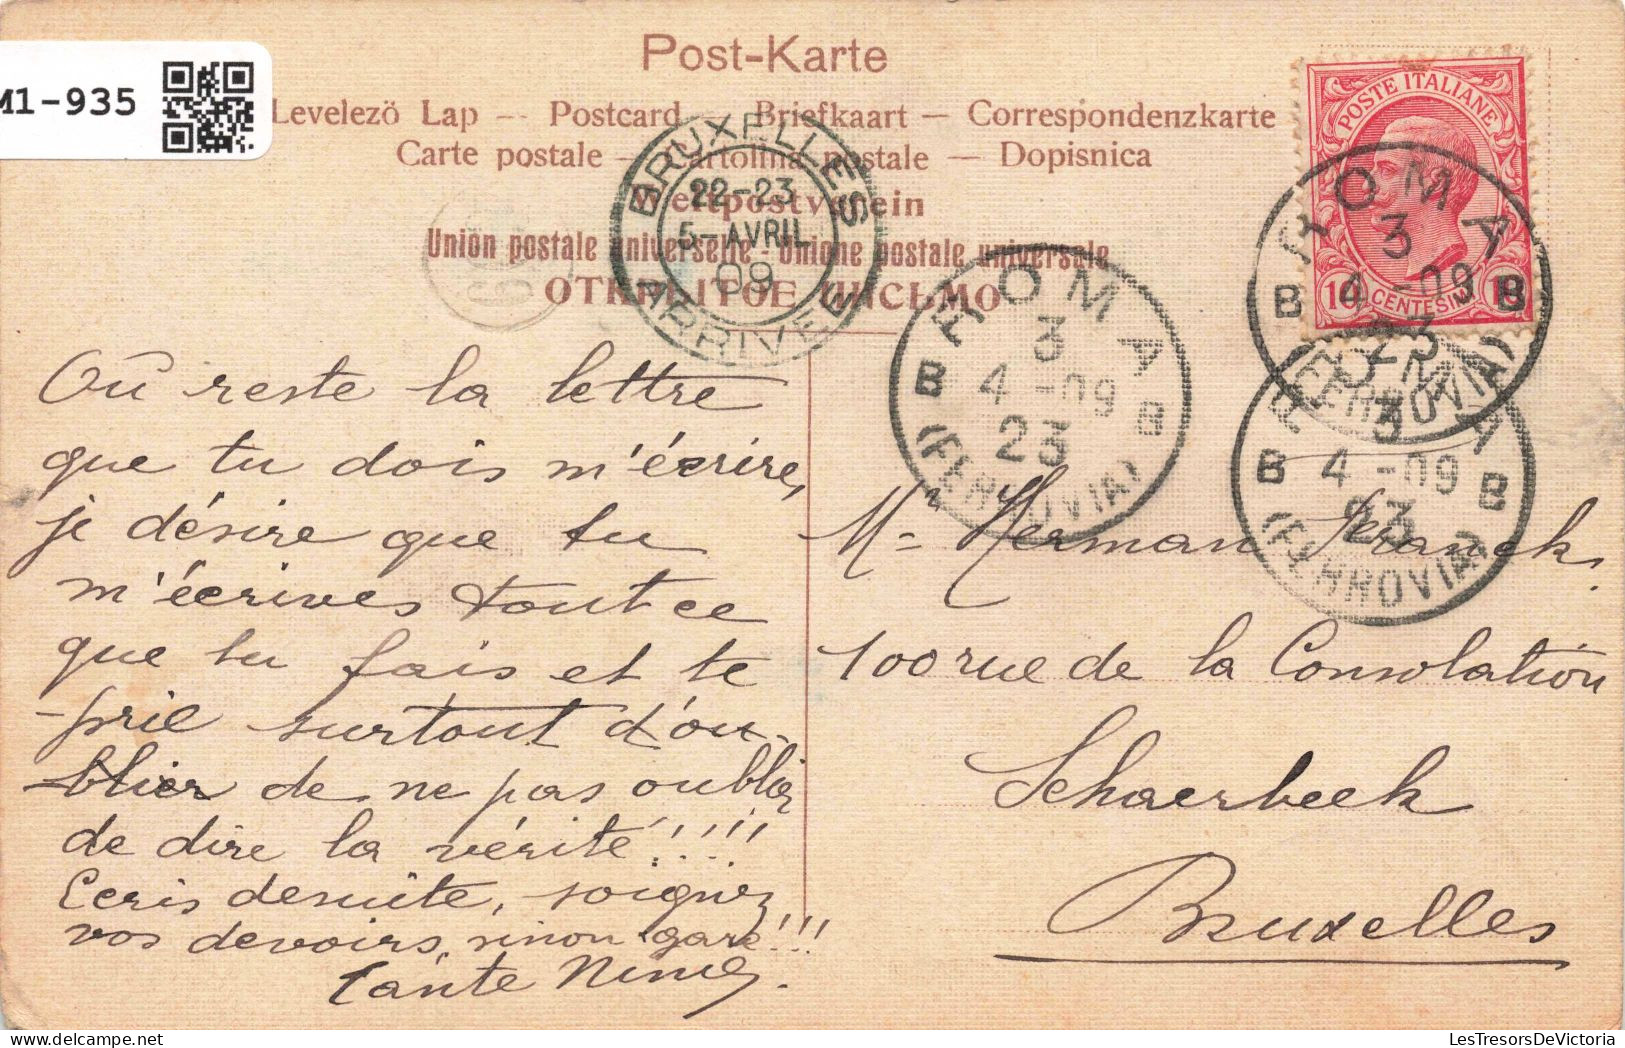 M1-935
Post-Karte
Levelezö Lap -- Postcard -- Briefkaart — Correspondenzkarte
Carte postale — Cartolina postale — Dopisnica
Weltpostverein
Union postale universelle - Unione postale universale
ОТКРЫТОЕ ПИСЬМО
BRUXELLES
22-23
5-AVRIL
09
ARRIVEE
POSTE ITALIANE
10 CENTESIMI 10
ROMA
3
4 - 09
23
B B
(FERROVIA)
ROMA
3
4 - 09
23
B B
(FERROVIA)
ROMA
3
4 - 09
23
B B
(FERROVIA)
Où reste la lettre
que tu dois m'écrire,
je désire que tu
m'écrives tout ce
que tu fais et te
prie surtout d'ou-
blier de ne pas oublier
de dire la vérité!!!!
Ecris desuite, soignez
vos devoirs, sinon gare!!!
Tante Ninie.
Mr Herman Franck.
100 rue de la Consolation
Schaerbeek
Bruxelles
LesTresorsDeVictoria